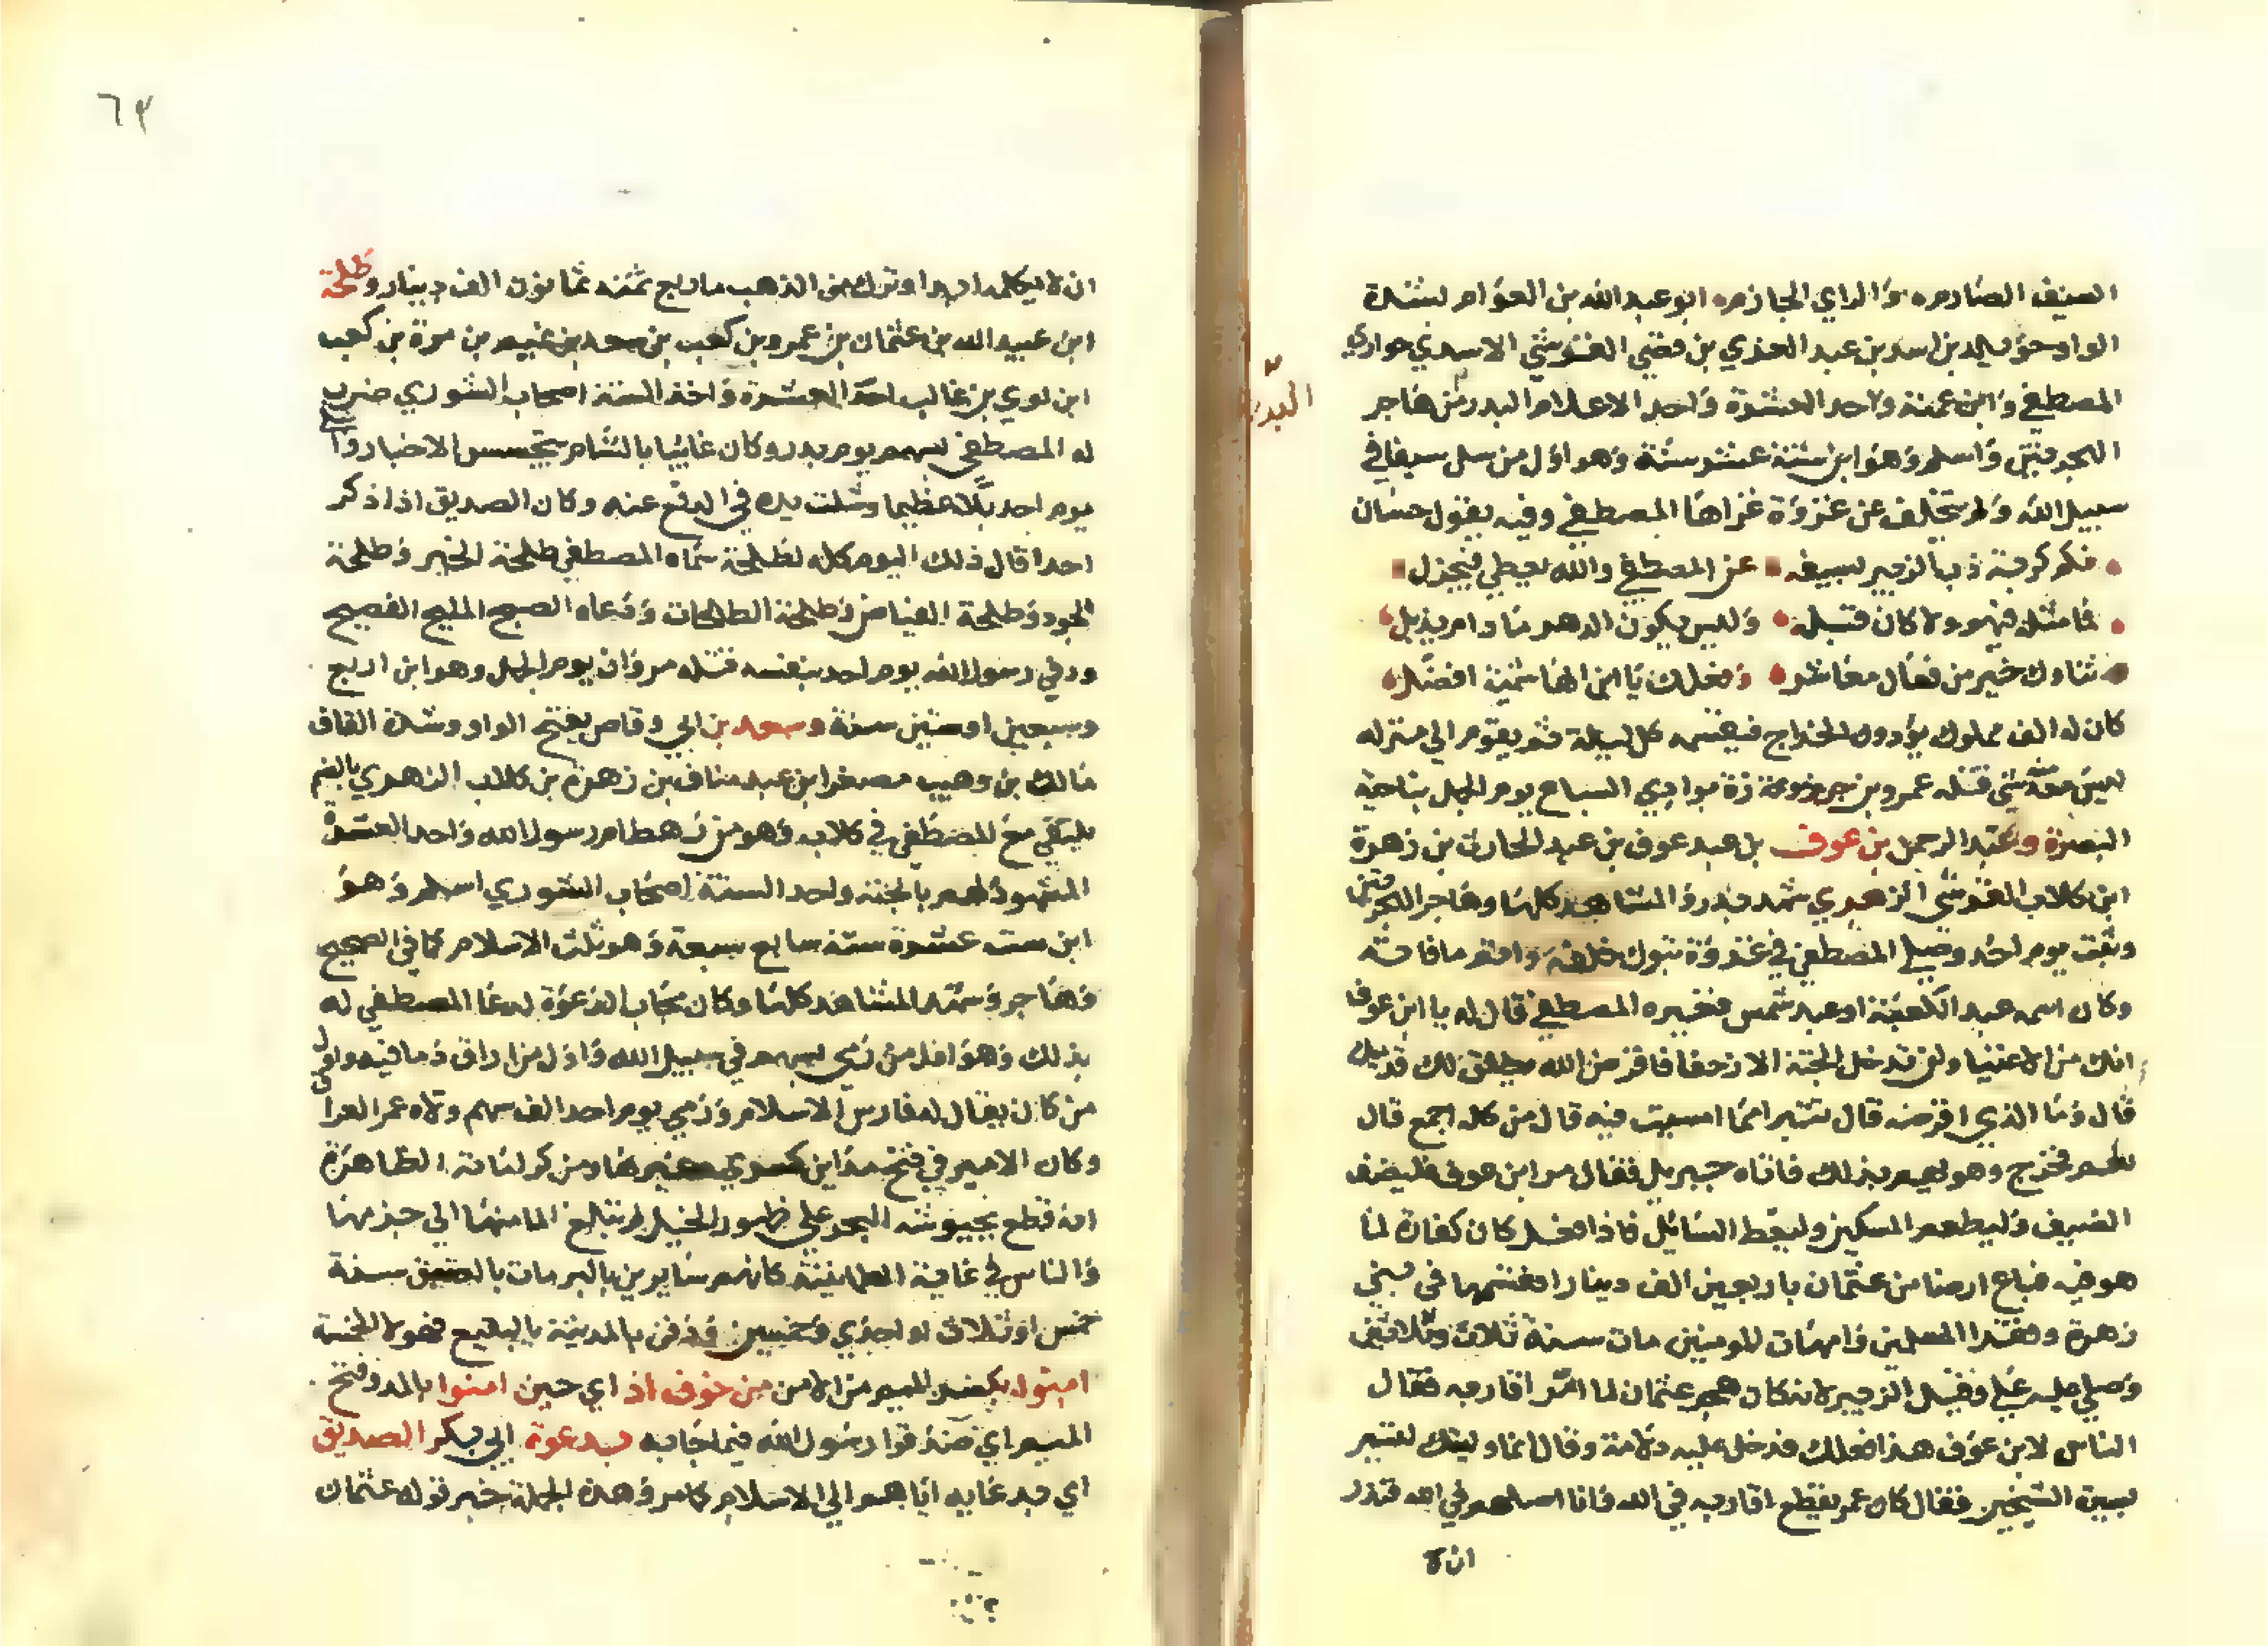 السيف الصارم والراي الحازم ابو عبد الله بن العوام بشدة
الواو بن خويلد بن اسد بن عبد العزي بن قصي القرشي الاسدي حواري
المصطفي وابن عمته واحد العشرة واحد الاعلام البدر من هاجر
الهجرتين واسلم وهو ابن ستة عشر سنة وهو اول من سل سيفا في
سبيل الله ولم يتخلف عن غزوة غزاها المصطفي وفيه يقول حسان
فكم كربة ذب الزبير بسيفه عن المصطفي والله يعطي فيجزل
فما مثله فيهم ولا كان قبله وليس يكون الدهر ما دام يذبل
ثناوك خير من فعال معاشر وفعلك يا ابن الهاشمية افضل
كان له الف مملوك يؤدون الخراج فيقسمه كل ليلة ثم يقوم الي منزله
ليس معه شي قتله عمرو بن جرموز بوادي السباع يوم الجمل بناحية
البصرة وعبد الرحمن بن عوف بن عبد عوف بن عبد الحارث بن زهرة
ابن كلاب القرشي الزهري شهد بدرا والمشاهد كلها وهاجر الهجرتين
وثبت يوم احد وصلي المصطفي في غزوة تبوك خلفه واتم ما فاته
وكان اسمه عبد الكعبة او عبد شمس فغيره المصطفي قال له يا ابن عوف
انك من الاغنيا ولن تدخل الجنة الا زحفا فاقرض الله يطلق لك قدميك
قال وما الذي اقرضه قال تتبرا مما امسيت فيه قال من كله اجمع قال
نعم فخرج وهو يهم بذلك فاتاه جبريل فقال مر ابن عوف فليضف
الضيف وليطعم المسكين وليعط السائل فاذا فعل كان كفارة لما
هو فيه فباع ارضا من عثمان باربعين الف دينار فقسمها في بني
زهرة وفقرا المسلمين وامهات المومنين مات سنة ثلاث وثلاثين
وصلي عليه علي وقيل الزبير لانه كان هجر عثمان لما امر اقاربه فقال
الناس لابن عوف هذا فعلك فدخل عليه ولامه وقال انما وليتك لتسير
بسيرة الشيخين فقال كان عمر يقطع اقاربه في الله وانا اصلهم في الله فنذر
ان لا
البدر
٦٣
ان لا يكلمه ابدا وترك من الذهب ما ربع ثمنه ثمانون الف دينار وطلحة
ابن عبيد الله بن عثمان بن عمرو بن كعب بن سعد بن تيم بن مرة بن كعب
ابن لوي بن غالب احد العشرة واحد الستة اصحاب الشوري ضرب
له المصطفي بسهم يوم بدر وكان غائبا بالشام يتجسس الاخبار
يوم احد بلا عظيما وشلت يده في الدفع عنه وكان الصديق اذا ذكر
احدا قال ذلك اليوم كله لطلحة سماه المصطفي طلحة الخير وطلحة
الجود وطلحة الفياض وطلحة الطلحات ودعاه الصبيح المليح الفصيح
ووقي رسول الله يوم احد بنفسه قتله مروان يوم الجمل وهو ابن اربع
وسبعين او ستين سنة وسعد بن ابي وقاص بفتح الواو وشدة القاف
مالك بن وهيب مصغرا ابن عبد مناف بن زهرة بن كلاب الزهري بالضم
يلتقي مع المصطفي في كلاب وهو من رهط ام رسول الله واحد العشرة
المشهود لهم بالجنة واحد الستة اصحاب الشوري اسلم وهو
ابن ست عشرة سنة سابع سبعة وهو ثلث الاسلام كما في الصحيح
وهاجر وشهد المشاهد كلها وكان مجاب الدعوة لدعا المصطفي له
بذلك وهو اول من رمي بسهم في سبيل الله واول من اراق دما فيه واول
من كان يقال له فارس الاسلام ورمي يوم احد الف سهم وولاه عمر العراق
وكان الامير في فتح مداين كسري وغيرها ومن كراماته الظاهرة
انه قطع بجيوشه البحر علي ظهور الخيل لم يبلغ الما منها الي حزمها
والناس في غاية الطمانينة كانهم سايرين بالبر مات بالعقيق سنة
خمس او ثلاث او احدي وخمسين ودفن بالمدينة بالبقيع فهولا الخمسة
امنوا بكسر الميم من الامن من خوف اذ اي حين امنوا بالمد وفتح
الميم اي صدقوا رسول الله فيما جا به بدعوة ابي بكر الصديق
اي بدعايه اياهم الي الاسلام كما مر وهذه الجملة خبر قوله عثمان